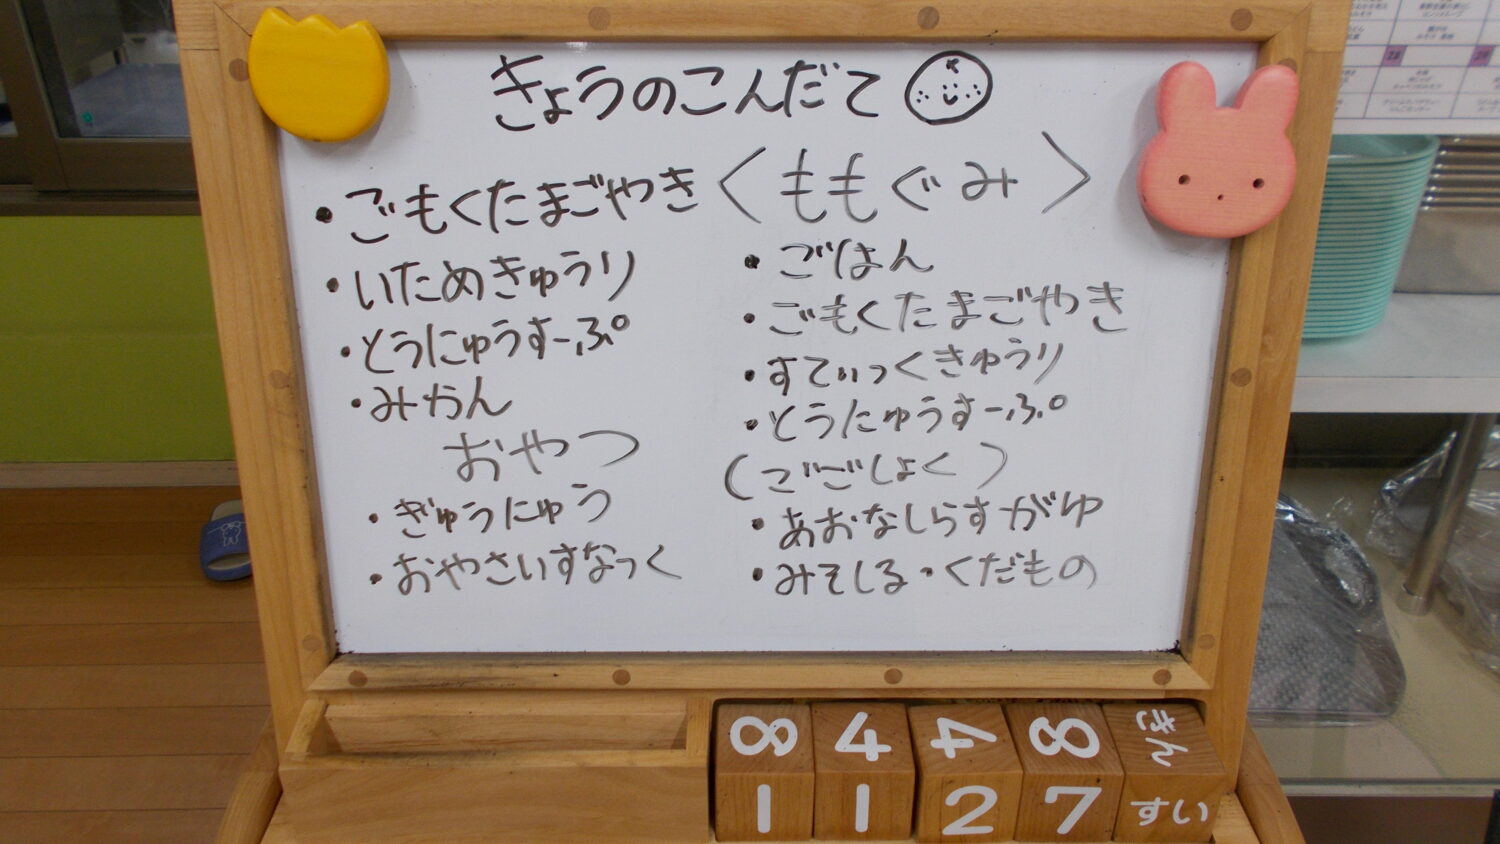 きょうのこんだて
・ごもくたまごやき
・いためきゅうり
・とうにゅうすーぷ
・みかん
おやつ
・ぎゅうにゅう
・おやさいすなっく
〈ももぐみ〉
・ごはん
・ごもくたまごやき
・すてぃっくきゅうり
・とうにゅうすーぷ
(ごごしょく)
・あおなしらすがゆ
・みそしる・くだもの
8 4 4 8 きん
1 1 2 7 すい